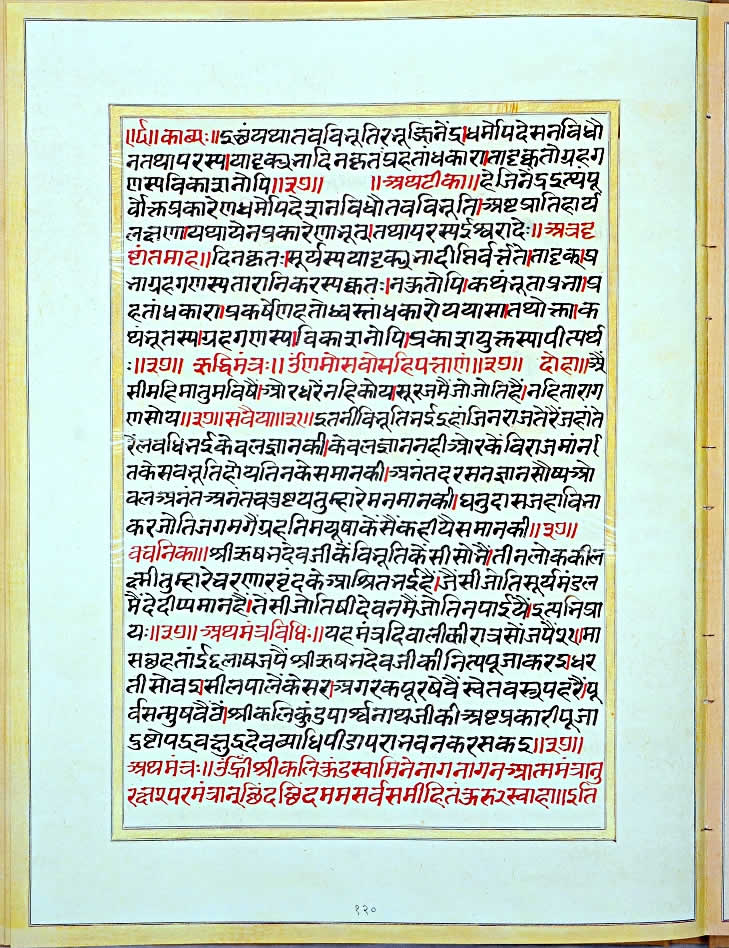 ॥र्द्य॥काव्यः॥इत्थंयथातवविभूतिरभूज्जिनेंद्र।धर्मोपदेसनविधौ
नतथापरस्य।यादृक्प्रभादिनकृतंप्रहतांधकारा।तादृक्कुतोग्रहग
णस्यविकाशनोपि॥३७॥ ॥अथटीका॥हेजिनेंद्रइत्यंपू
र्वोक्तप्रकारेणधर्मोपदेशनविधौतवविभूति।अष्टप्रातिहार्य
लक्षणा।यथायेनप्रकारेणाभूत्।तथापरस्यईश्वरादेः॥अत्रदृ
ष्टांतमाह॥दिनकृतः।सूर्यस्ययादृक्प्रभादीप्तिर्वर्त्तते।तादृक्।प्र
भाग्रहगणस्यतारानिकरस्यकृतः।नकुतोपि।कथंभूताप्रभा।प्र
हतांधकारा।प्रकर्षेणहतोध्वस्तांधकारोययासा।तथोक्ता।क
थंभूतस्य।ग्रहगणस्य।विकाशनोपि।प्रकाशयुक्तस्यापीत्यर्थ
ः॥३७॥ ऋद्धिमंत्रः॥उँणमोसवोसहिपत्ताणं॥३७॥ दोहा॥अै
सीमहिमातुमविषै।औरधरैंनहिकोय।सूरजमैंजोजोतिहैं।नहितारागा
णसोय॥३७॥सवैया॥३१॥इतनीविभूतिनईइहांजिनराजतेरैंजहांते
रैलवधिनईकेवलज्ञानकी।केवलज्ञाननहीऔरकेंविराजमांन।
तकेसवभूतिहोयतिनकेसमानकी।अनंतदरसनज्ञानसौष्यऔ
वलअनंतअनंतवतुष्टयतुम्हारेमनमानकी।घनुदासजहाविना
करजोतिजगमगैग्रहनिमयूषाकेसैंकहीयेसमानकी॥३७॥
वचनिका॥श्रीऋषभदेवजीकेंविभूतिकेसीसोभै।तीनलोककील
क्ष्मीतुम्हारेचरणारबृंदकेंआश्रितनईहैं।जैसीजोतिसूर्यमंडल
मैंदेदीप्यमानहैं।तैसीजोतिषीदेवनमैंजोतिनपाईयैं।इत्यभिप्रा
यः॥३७॥अथमंत्रविधिः॥यहमंत्रदिवालीकीरात्रसोंजपैं१२।मा
सछहतांईइलाषजपैंश्रीऋषभदेवजीकीनित्यपूजाकरइ।धर
तीसोवइ।सीलपालेंकेसरा।अगरकपूरषेवैंस्वेतवस्त्रपहरैं।पू
र्वसन्मुषवैठें।श्रीकलिकुंडपार्श्वनाथजीकीअष्टप्रकारीपूजा
दुष्टोपद्रवक्षुद्रदेवव्याधिपीडापराभवनकरसकइ॥३७॥
अथमंत्रः॥उँह्रींश्रीकलिकुंडस्वामिनेनागनागनआत्ममंत्रानु
रक्षा२परमंत्रान्छिंदछिंदममसर्वसमीहितंकुरु२स्वाहा॥इति
१२०